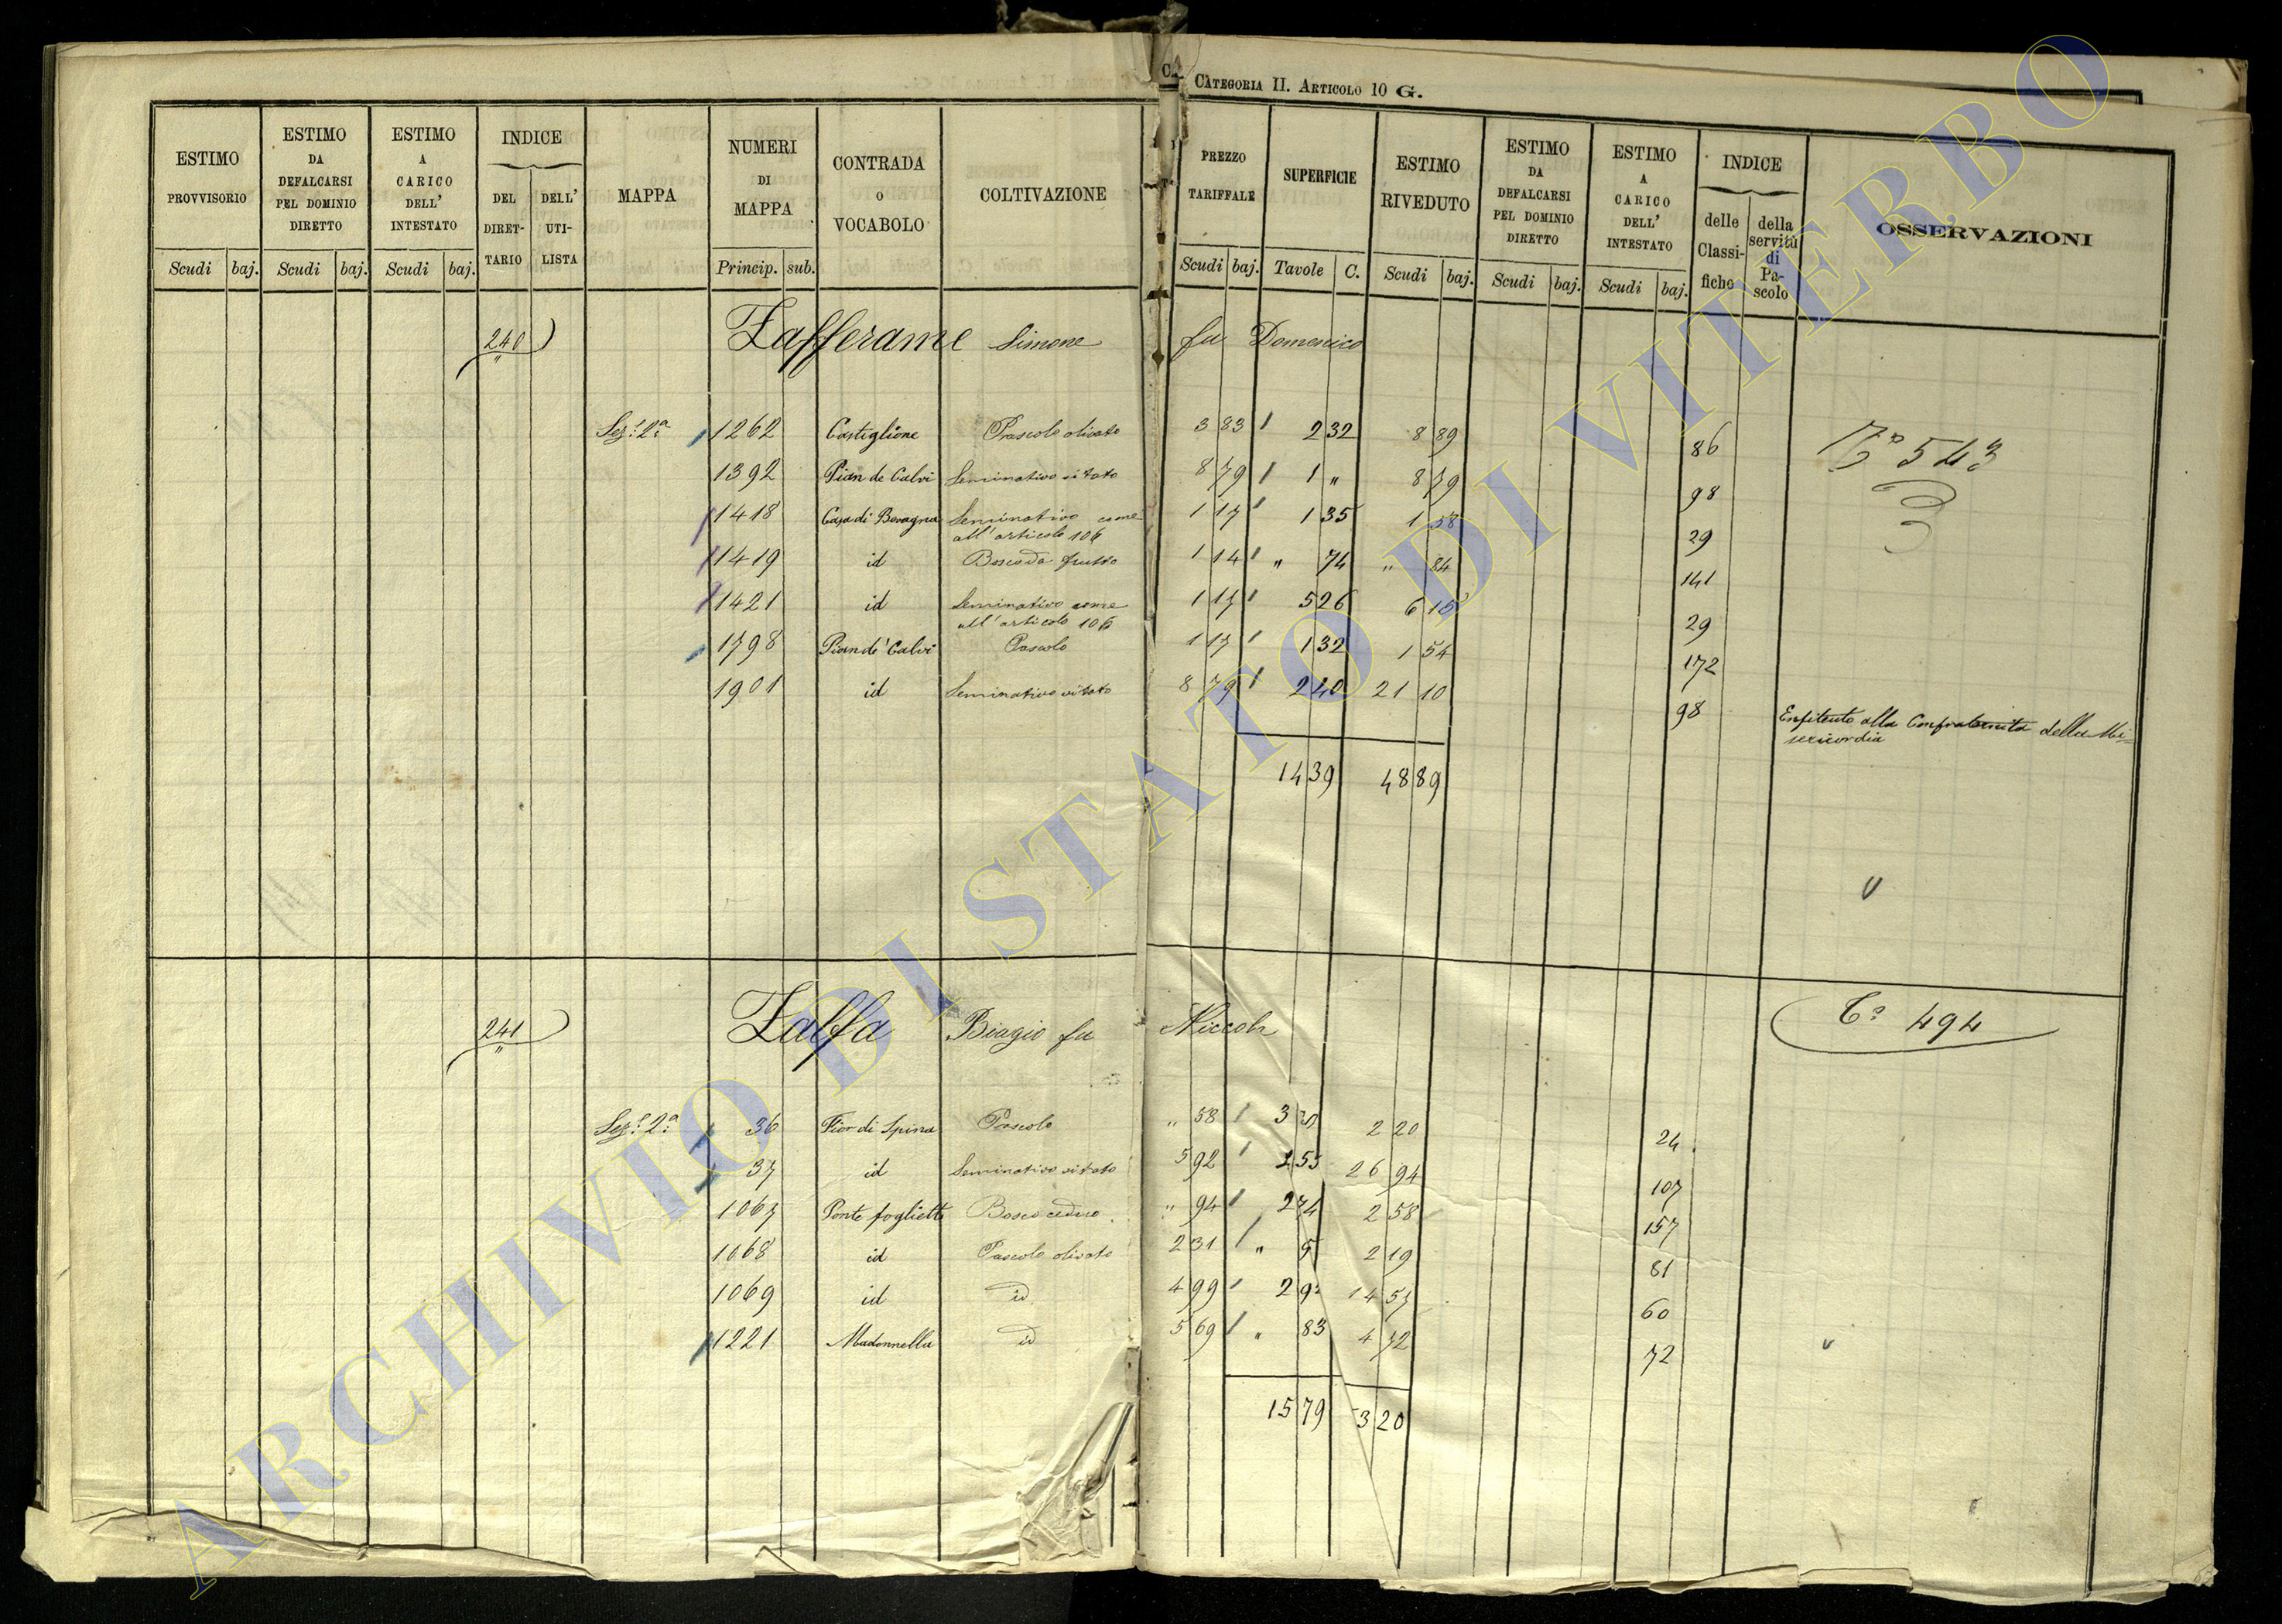 CATEGORIA II. ARTICOLO 10 G.
ESTIMO PROVVISORIO Scudi baj.
ESTIMO DA DEFALCARSI PEL DOMINIO DIRETTO Scudi baj.
ESTIMO A CARICO DELL' INTESTATO Scudi baj.
INDICE DEL DIRETTARIO DELL' UTILISTA
MAPPA
NUMERI DI MAPPA Princip. sub.
CONTRADA O VOCABOLO
COLTIVAZIONE
PREZZO TARIFFALE Scudi baj.
SUPERFICIE Tavole C.
ESTIMO RIVEDUTO Scudi baj.
ESTIMO DA DEFALCARSI PEL DOMINIO DIRETTO Scudi baj.
ESTIMO A CARICO DELL' INTESTATO Scudi baj.
INDICE delle Classifiche della servitù di Pascolo
OSSERVAZIONI
240 Zafferame Simone fu Domenico
Sez.e 2.a 1262 Castiglione Pascolo olivato 3 83 2 32 8 89 86 543
1392 Pian de Calvi Seminativo vitato 8 79 1 " 8 79 98
1418 Casa di Bevagna Seminativo come 1 17 1 35 1 58 29
all'articolo 106
1419 id Bosco da frutto 1 14 " 74 " 84 141
1421 id Seminativo come 1 17 5 26 6 15 29
all'articolo 106
1798 Pian de' Calvi Pascolo 1 17 1 32 1 54 172
1901 id Seminativo vitato 8 79 2 40 21 10 98 Enfiteuto alla Confraternita della Mi=
sericordia
14 39 48 89
241 Zaffa Biagio fu Niccola C.o 494
Sez.e 2.a 36 Fior di Spina Pascolo " 58 3 2 20 24
37 id Seminativo vitato 5 92 4 55 26 94 107
1067 Ponte foglietto Bosco ceduo " 94 2 74 2 58 157
1068 id Pascolo olivato 2 31 " 2 19 81
1069 id id 4 99 2 14 57 60
1221 Madonnella id 5 69 " 83 4 72 72
15 79 3 20
ARCHIVIO DI STATO DI VITERBO